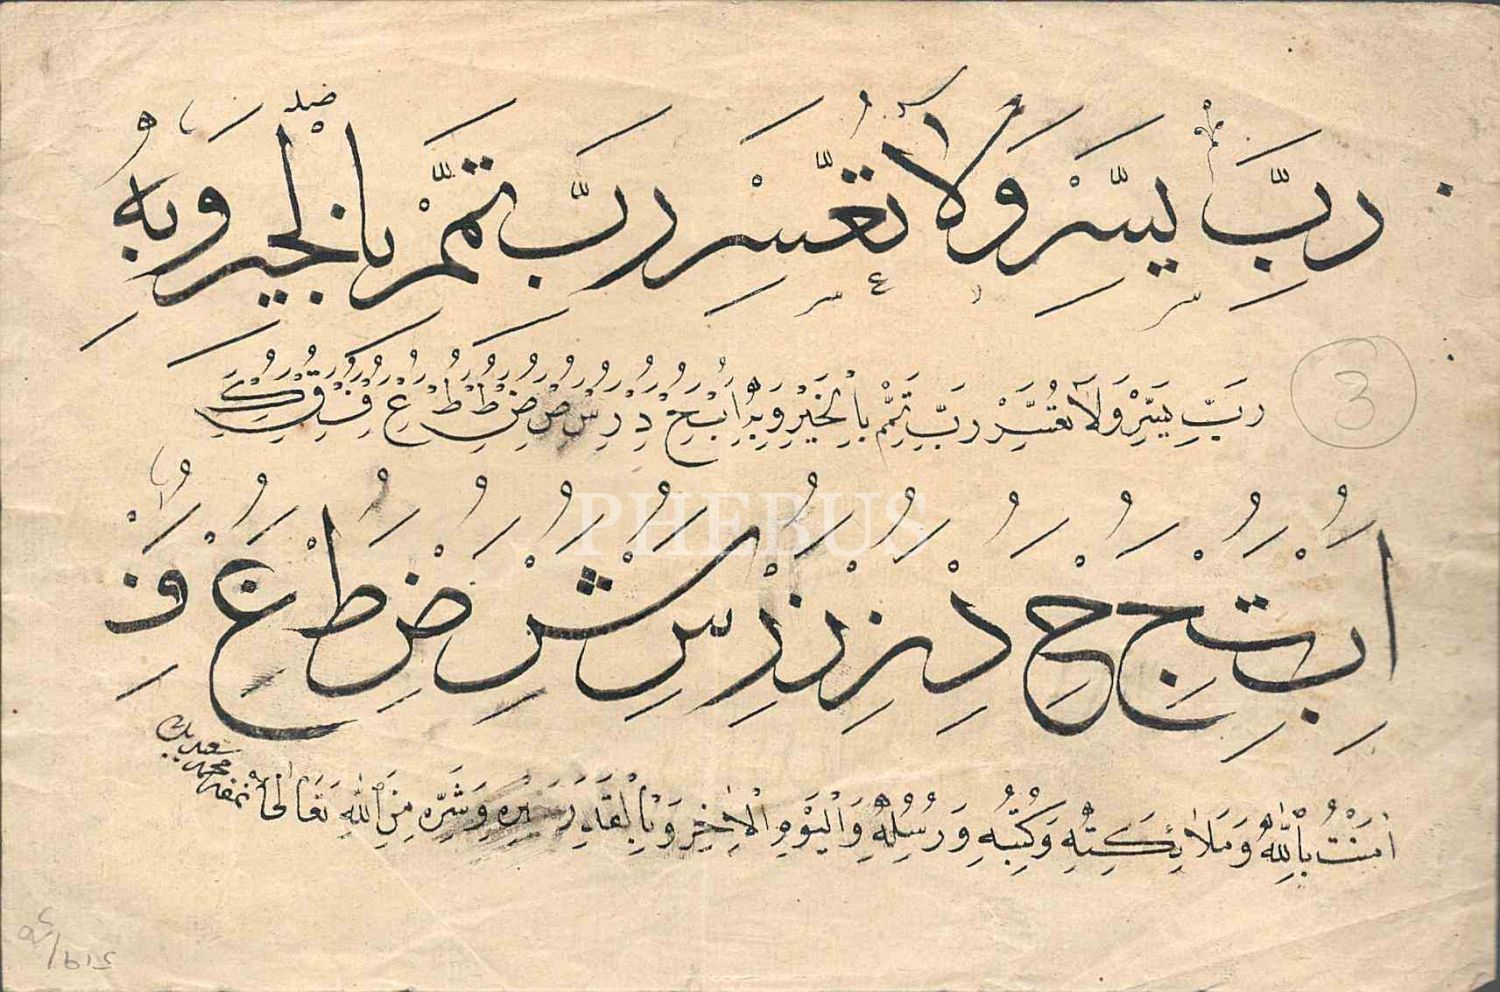 رَبِّ يَسِّرْ وَلَا تُعَسِّرْ رَبِّ تَمِّمْ بِالْخَيْرِ وَبِهِ
3
رَبِّ يَسِّرْ وَلَا تُعَسِّرْ رَبِّ تَمِّمْ بِالْخَيْرِ وَبِهِ ا ب ج د ر س ص ض ط ظ ع ف ق ك
PHEBUS
ا ب ت ج خ د ذ ز س ش ض ط غ ف
اٰمَنْتُ بِاللّٰهِ وَمَلَائِكَتِهِ وَكُتُبِهِ وَرُسُلِهِ وَالْيَوْمِ الْاٰخِرِ وَبِالْقَدَرِ خَيْرِهِ وَشَرِّهِ مِنَ اللّٰهِ تَعَالٰى
نمقه محمد سعد